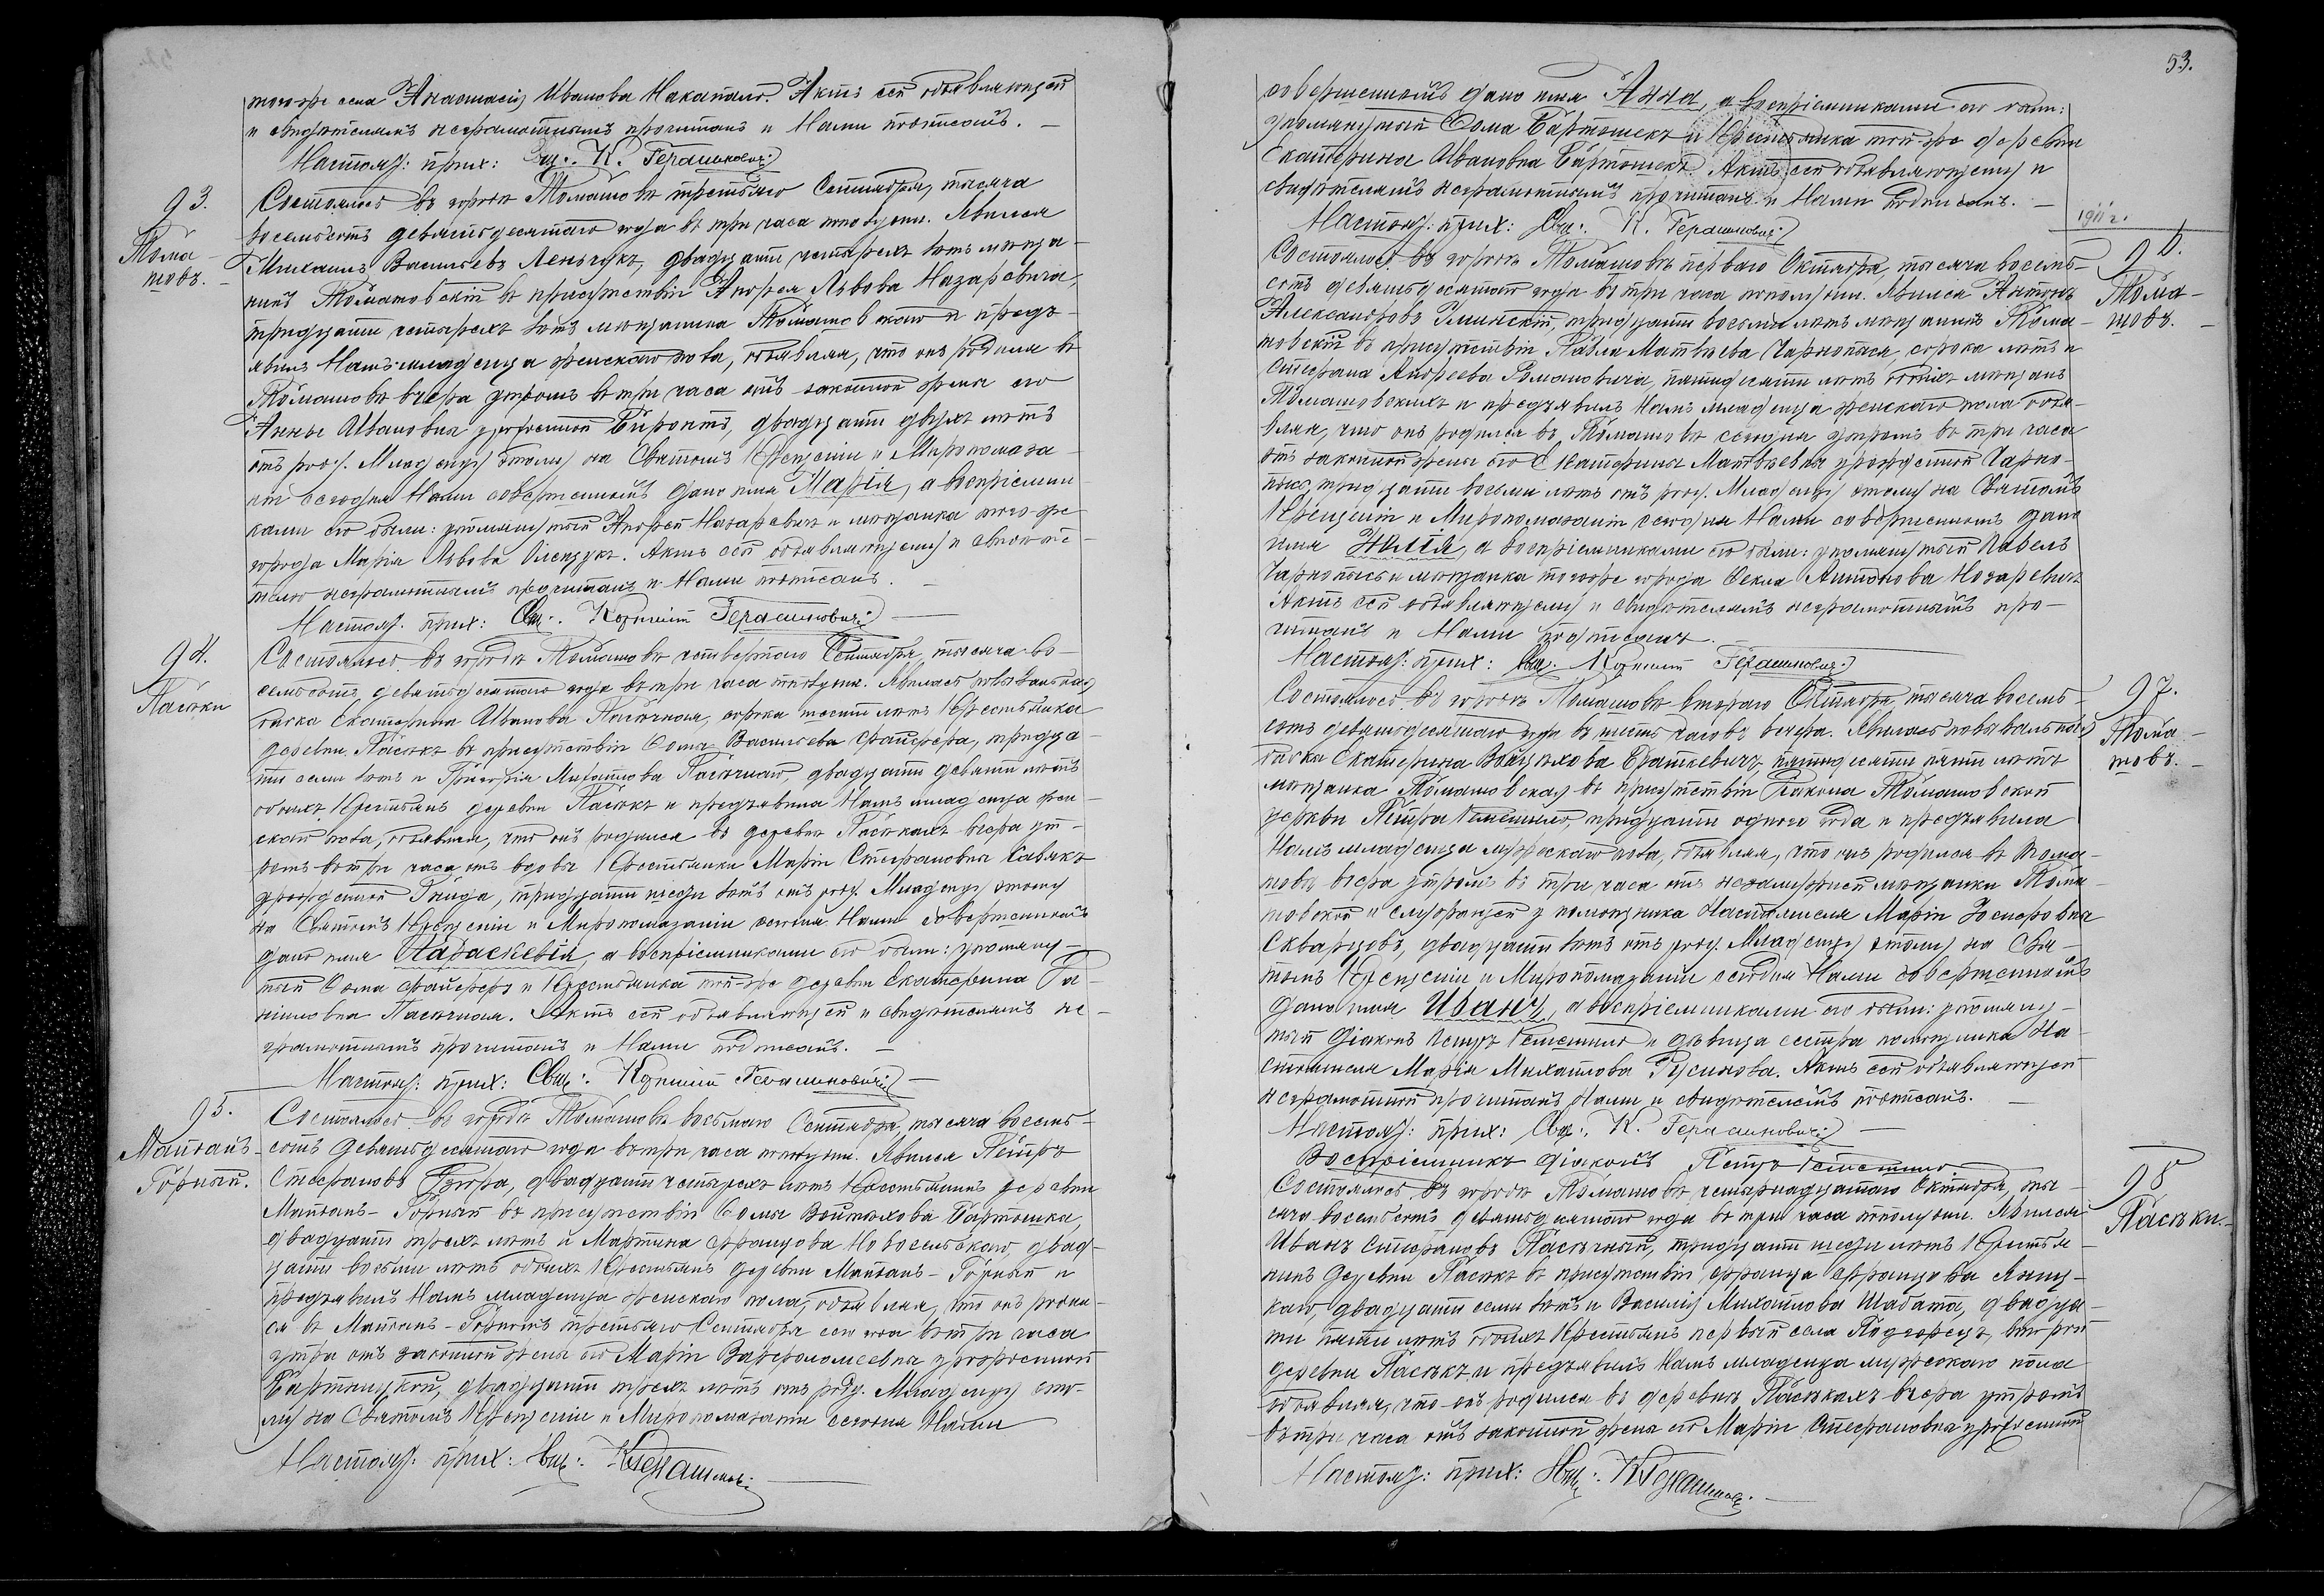 тогоже села Анастасія Иванова Накапало. Актъ сей объявляющей
и свидѣтелямъ неграмотнымъ прочитанъ и Нами подписанъ. —
Настоят: прих: Свщ: К. Герашковичъ
93.
Тома-
шовъ. —
Состоялось въ городѣ Томашовѣ третьяго Сентября, тысяча
восемьсотъ девяностодесятаго года въ три часа пополудни. Явился
Михаилъ Васильевъ Леньчукъ, двадцати четырехъ лѣтъ мѣща-
нинъ Томашовскій въ присутствіи Андрея Львова Назаревича,
тридцати четырехъ лѣтъ мѣщанина Томашовскаго и предъ-
явилъ Намъ младенца женскаго пола, объявляя, что онъ родился въ
Томашовѣ вчера утромъ въ три часа отъ законной жены его
Анны Ивановны урожденной двадцати двухъ лѣтъ
отъ роду. Младенцу этому на Святомъ Крещеніи и Миропомаза-
ніи сегодня Нами совершенномъ дано имя Марія, а воспріемни-
ками его были: упомянутый Андрей Назаревичъ и мѣщанка того-же
города Марія Львова Олещукъ. Актъ сей объявляющему и свидѣте-
лямъ неграмотнымъ прочитанъ и Нами подписанъ. —
Настоят: прих: Свщ: Корнилій Герашковичъ —
94.
Пасѣки
Состоялось въ городѣ Томашовѣ четвертаго Сентября, тысяча во-
семьсотъ девятьдесятаго года въ три часа пополудни. Явилась повивальная
бабка Екатерина Иванова Пасѣчная, сорока шести лѣтъ Крестьянка
деревни Пасѣкъ въ присутствіи Ѳомы Васильева тридца-
ти семи лѣтъ и Григорія Михайлова Пасѣчнаго, двадцати девяти лѣтъ
обоихъ Крестьянъ деревни Пасѣкъ и предъявила Намъ младенца жен-
скаго пола, объявляя, что онъ родился въ деревнѣ Пасѣкахъ вчера ут-
ромъ въ три часа отъ вдовы Крестьянки Маріи Стефановны Савякъ
урожденной Гнида, тридцати шести лѣтъ отъ роду. Младенцу этому
на Святомъ Крещеніи и Миропомазаніи сегодня Нами совершенномъ
дано имя Параскевія, а воспріемниками его были: упомяну-
тый Ѳома и Крестьянка той-же деревни Екатерина Да-
ніиловна Пасѣчная. Актъ сей объявляющей и свидѣтелямъ не-
грамотнымъ прочитанъ и Нами подписанъ. —
Настоят: прих: Свщ: Корнилій Герашковичъ —
95.
Майданъ-
Горный.
Состоялось въ городѣ Томашовѣ восьмаго Сентября, тысяча восемь-
сотъ девятьдесятаго года въ три часа пополудни. Явился Петръ
Стефановъ двадцати четырехъ лѣтъ Крестьянинъ деревни
Майданъ-Горный въ присутствіи Ѳомы Войтѣхова Бартошка,
двадцати трехъ лѣтъ и Мартина Францова Новосельскаго, двад-
цати восьми лѣтъ обоихъ Крестьянъ деревни Майданъ-Горный и
предъявилъ Намъ младенца женскаго пола, объявляя, что онъ родил-
ся въ Майданѣ-Горномъ третьяго Сентября сего года въ три часа
утра отъ законной жены его Маріи Варфоломеевны урожденной
двадцати трехъ лѣтъ отъ роду. Младенцу это-
му на Святомъ Крещеніи и Миропомазаніи сегодня Нами
Настоят: прих: Свщ:
53.
совершенномъ дано имя Анна, а воспріемниками его были:
упомянутый Ѳома Бартошекъ и Крестьянка той-же деревни
Екатерина Ивановна Бартошекъ. Актъ сей объявляющему и
свидѣтелямъ неграмотнымъ прочитанъ и Нами подписанъ. —
Настоят: прих: Свщ: К. Герашковичъ
1911 г.
96.
Тома-
шовъ. —
Состоялось въ городѣ Томашовѣ перваго Октября, тысяча восемь-
сотъ девятьдесятаго года въ три часа пополудни. Явился Антонъ
Александровъ тридцати восьми лѣтъ мѣщанинъ Тома-
шовскій въ присутствіи Павла Матвѣева Чарнопыся, сорока лѣтъ и
Стефана Андреева Романовича, пятидесяти лѣтъ обоихъ мѣщанъ
Томашовскихъ и предъявилъ Намъ младенца женскаго пола объя-
вляя, что онъ родился въ Томашовѣ сегодня утромъ въ три часа
отъ законной жены его Екатерины Матвѣевны урожденной Чарно-
пысъ, тридцати восьми лѣтъ отъ роду. Младенцу этому на Святомъ
Крещеніи и Миропомазаніи сегодня Нами совершенномъ дано
имя Юлія, а воспріемниками его были: упомянутый Павелъ
Чарнопысь и мѣщанка тогоже города Ѳекла Антонова Назаревичъ.
Актъ сей объявляющему и свидѣтелямъ неграмотнымъ про-
читанъ и Нами подписанъ.
Настоят: прих: Свщ: Корнилій Герашковичъ
97.
Тома-
шовъ. —
Состоялось въ городѣ Томашовѣ втораго Октября, тысяча восемь-
сотъ девятьдесятаго года въ шесть часовъ вечера. Явилась повивальная
бабка Екатерина Войцѣхова Драткевичъ, пятидесяти пяти лѣтъ
мѣщанка Томашовская въ присутствіи Діакона Томашовской
церкви Петра тридцати одного года и предъявила
Намъ младенца мужескаго пола, объявляя, что онъ родился въ Тома-
шовѣ вчера утромъ въ три часа отъ незамужней мѣщанки Тома-
шовской и служанцей у помощника Настоятеля Маріи Іосифовны
Скварцовъ, двадцати лѣтъ отъ роду. Младенцу этому на Свя-
томъ Крещеніи и Миропомазаніи сегодня Нами совершенномъ
дано имя Иванъ, а воспріемниками его были: упомяну-
тый діаконъ Петръ и дѣвица сестра помощника На-
стоятеля Марія Михайлова Русинова. Актъ сей объявляющей
неграмотной прочитанъ, Нами и свидѣтелемъ подписанъ. —
Настоят: прих: Свщ: К. Герашковичъ —
Воспріемникъ діаконъ Петръ
98
Пасѣки. —
Состоялось въ городѣ Томашовѣ, четырнадцатаго Октября, ты-
сяча восемьсотъ девятьдесятаго года въ три часа пополудни. Явился
Иванъ Стефановъ Пасѣчный, тридцати шести лѣтъ Крестья-
нинъ деревни Пасѣкъ въ присутствіи Франца Францова Янцу-
каго, двадцати семи лѣтъ и Василія Михайлова Шабата, двадца-
ти пяти лѣтъ обоихъ Крестьянъ первый села Подгорецъ, второй
деревни Пасѣкъ, и предъявилъ Намъ младенца мужескаго пола
объявляя, что онъ родился въ деревнѣ Пасѣкахъ вчера утромъ
въ три часа отъ законной жены его Маріи Стефановны урожденной
Настоят: прих: Свщ: